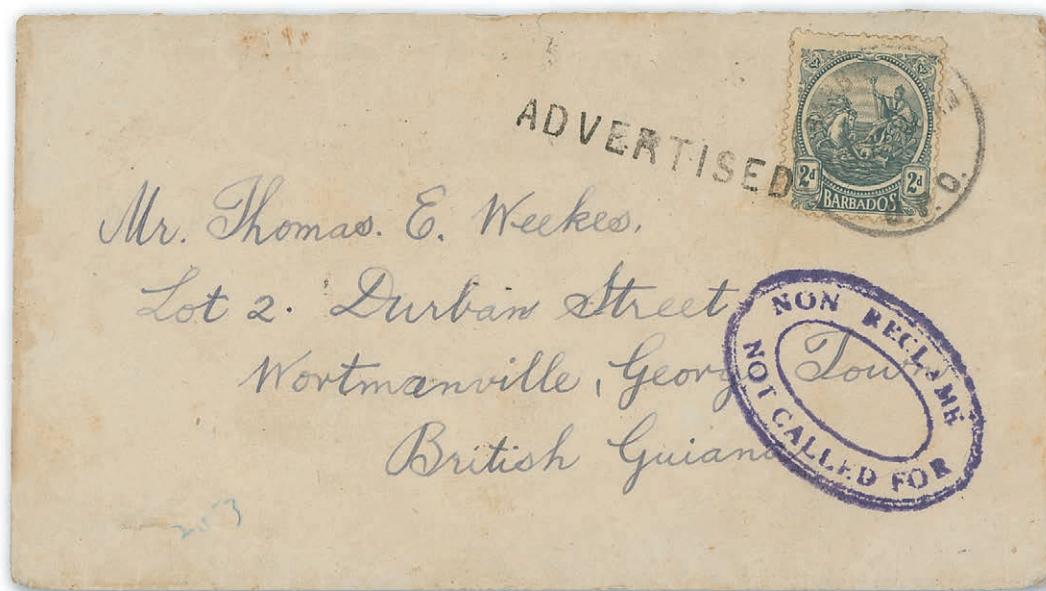 ADVERTISED
2d 2d
BARBADOS
G.P.O.
Mr. Thomas. E. Weekes,
Lot 2. Durban Street
Wortmanville, George Town
British Guiana
NON RECLAME
NOT CALLED FOR